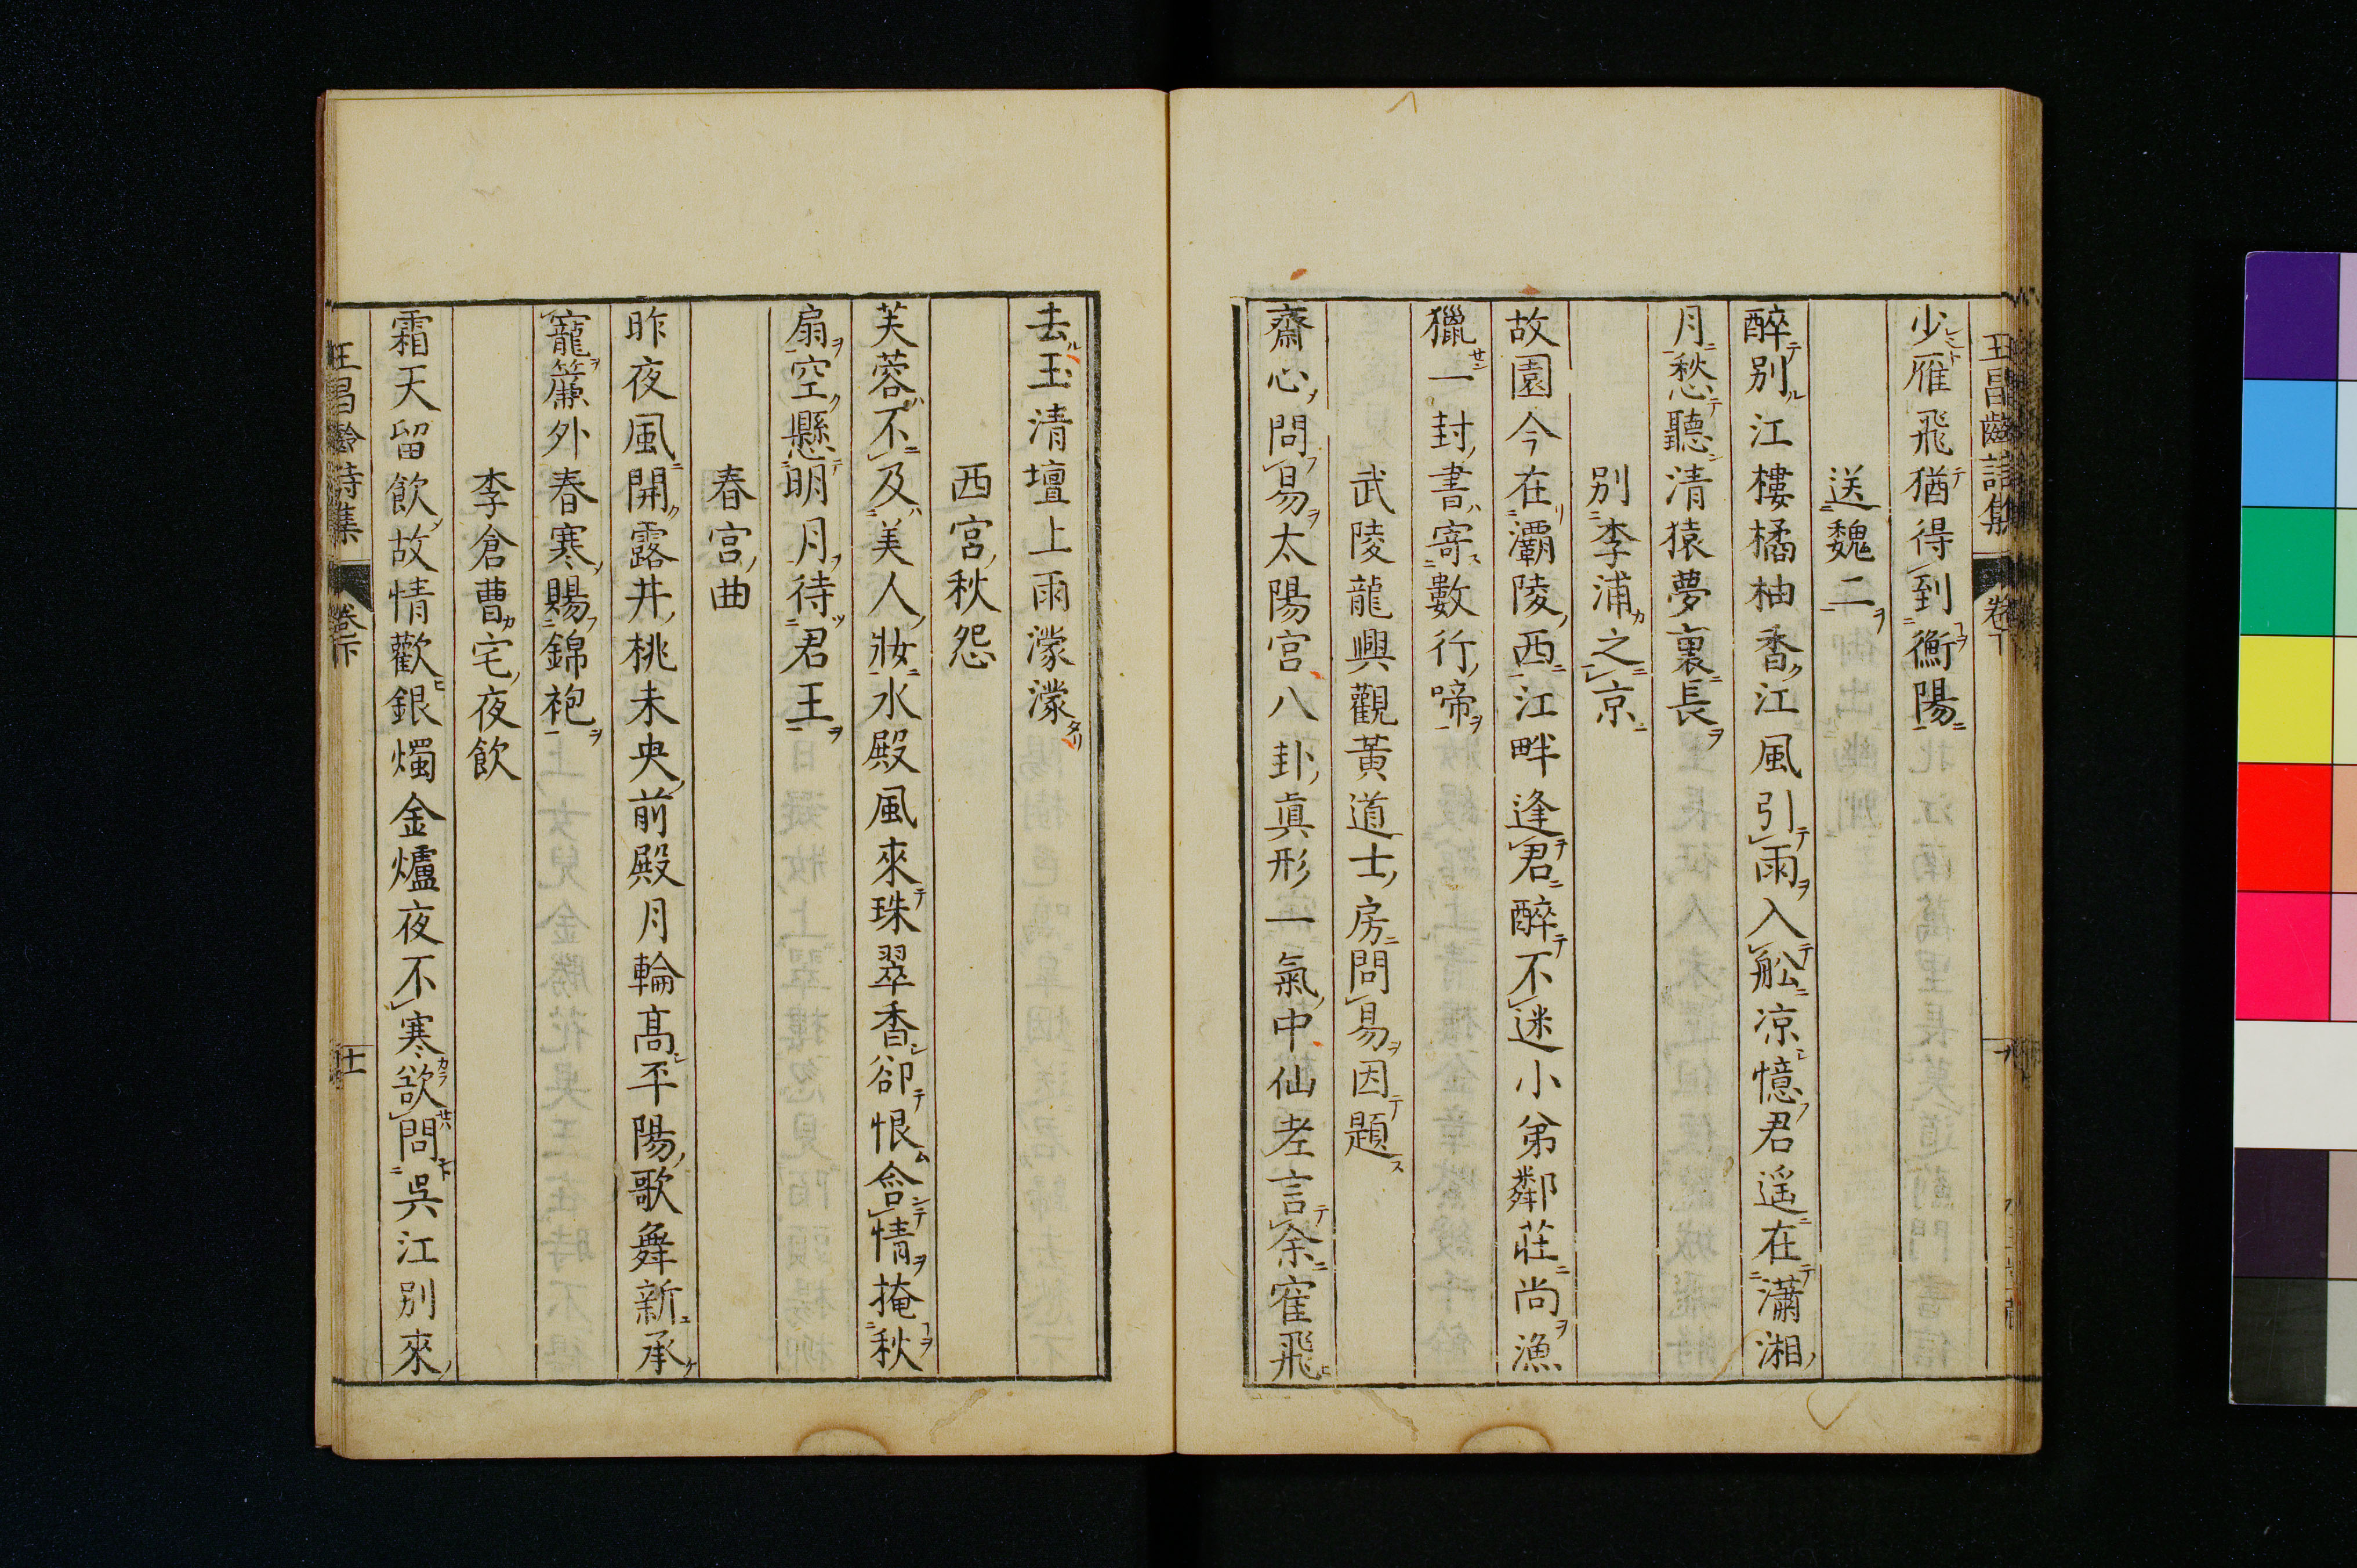 少雁飛猶得到衡陽
送魏二
醉別江樓橘柚香江風引雨入舩凉憶君遥在瀟湘
月愁聽清猿夢裏長
別李浦之京
故園今在灞陵西江畔逢君醉不迷小弟鄰莊尚漁
獵一封書寄數行啼
武陵龍興觀黃道士房問易因題
齋心問易太陽宮八卦真形一氣中仙老言余寉飛
去玉清壇上雨濛濛
西宮秋怨
芙蓉不及美人妝水殿風來珠翠香卻恨含情掩秋
扇空懸明月待君王
春宮曲
昨夜風開露井桃未央前殿月輪高平陽歌舞新承
寵簾外春寒賜錦袍
李倉曹宅夜飲
霜天留飲故情歡銀燭金爐夜不寒欲問吳江別來
王昌齡詩集 卷下 十一